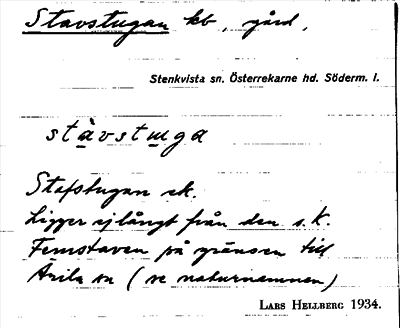 Stavstugan kb, gård,
Stenkvista sn. Österrekarne hd. Söderm. l.
stàvstuga
Stafstugan ek.
Ligger ej långt från den s.k.
Femstaven på gränsen till
Ärila sn (se naturnamnen)
LARS HELLBERG 1934.